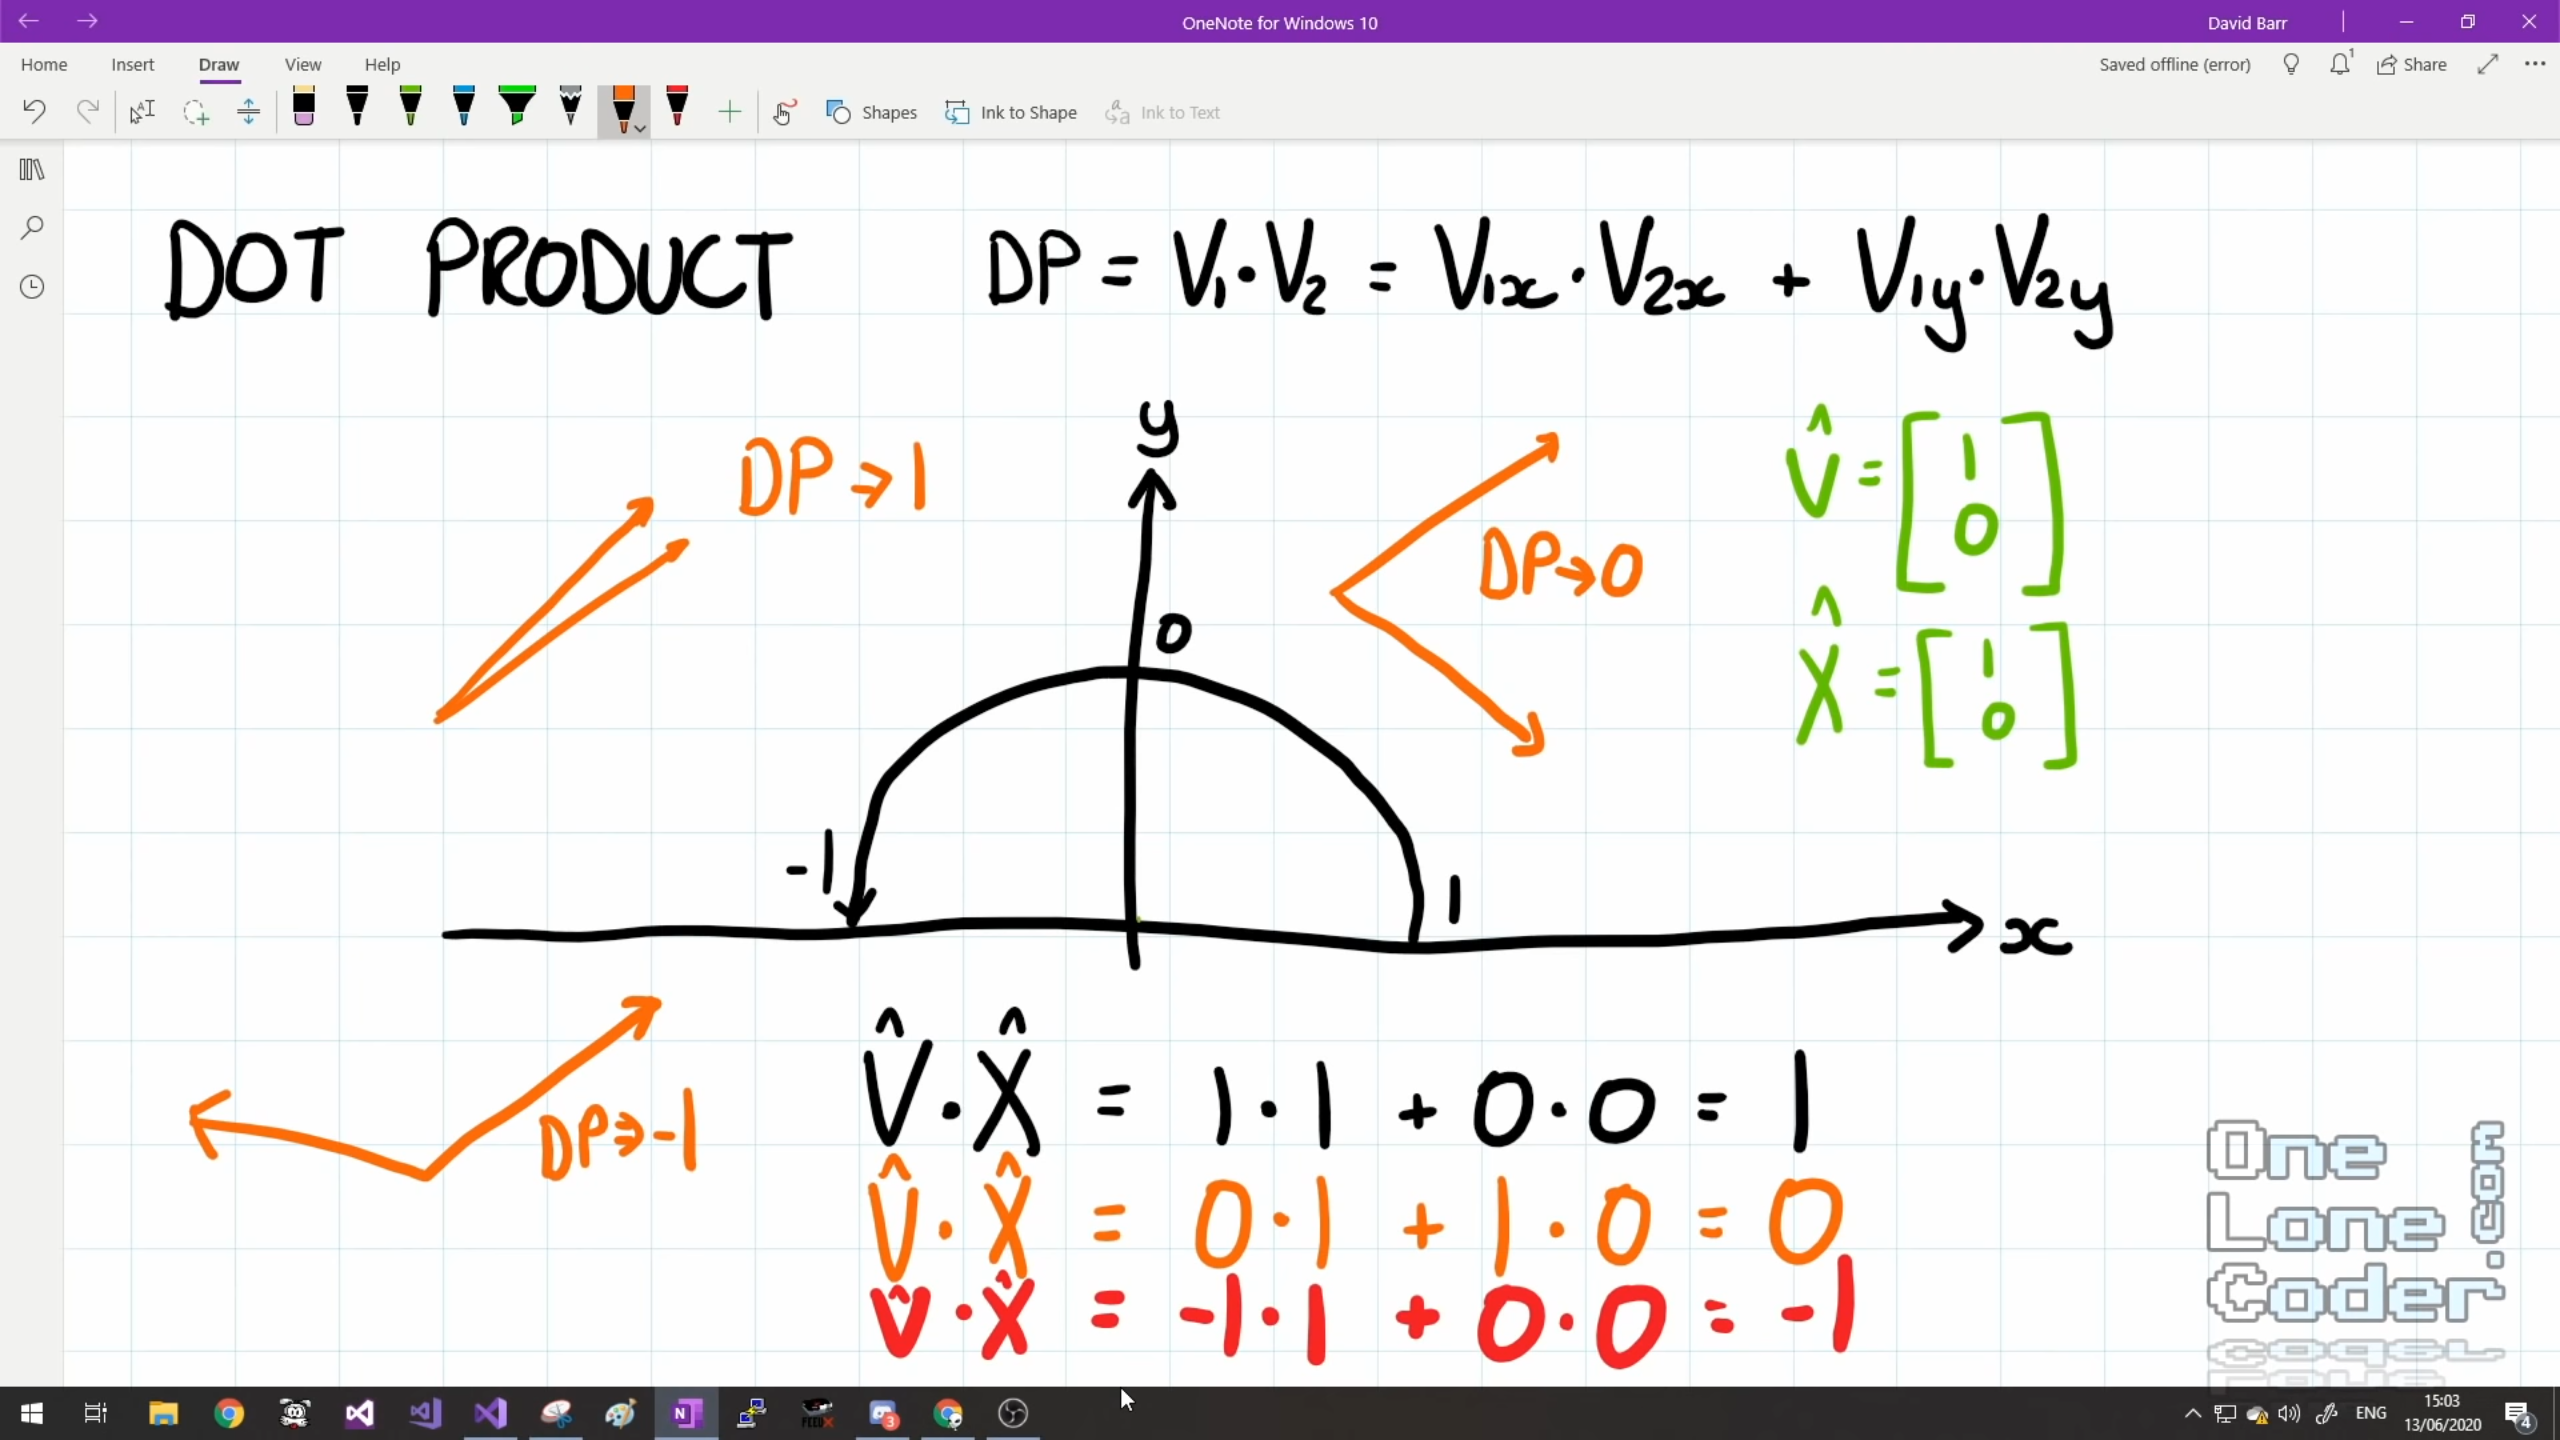 OneNote for Windows 10
David Barr
Home Insert Draw View Help
Saved offline (error)
1
Share
Shapes
Ink to Shape
Ink to Text
DOT PRODUCT
DP = V₁·V₂ = V₁x·V₂x + V₁y·V₂y
y
DP → 1
DP → 0
V̂ = [1 0]
X̂ = [1 0]
0
-1
1
x
DP → -1
V̂·X̂ = 1·1 + 0·0 = 1
V̂·X̂ = 0·1 + 1·0 = 0
V̂·X̂ = -1·1 + 0·0 = -1
One
Lone
Coder
.com
N
3
ENG
15:03
13/06/2020
4